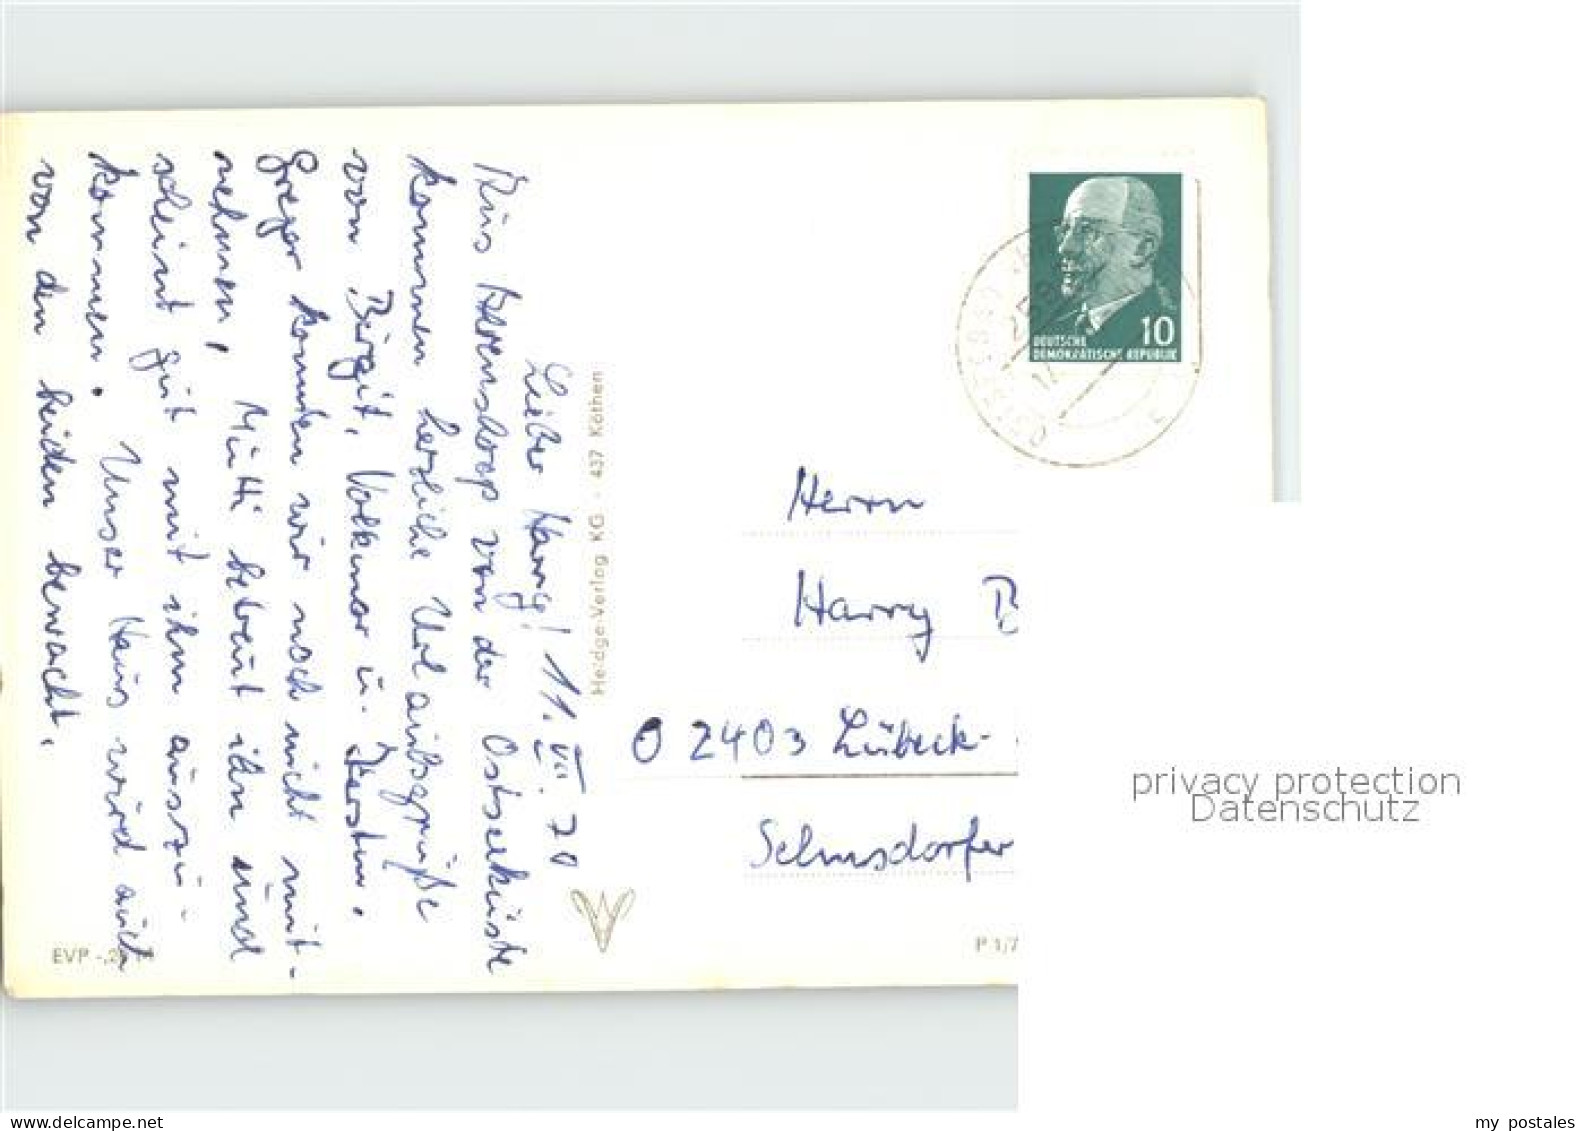 Lieber Harry! 11. VII. 70
Aus Ahrenshoop von der Ostseeküste
kommen herzliche Urlaubsgrüße
von Birgit, Volkmar u. Kerstin.
Gregor konnten wir noch nicht mit-
nehmen, Mutti betreut ihn und
scheint gut mit ihm auszu-
kommen. Unser Haus wird auch
von den beiden bewacht.
Heldge-Verlag KG - 437 Köthen
EVP -,2
P 1/7
10
DEUTSCHE
DEMOKRATISCHE REPUBLIK
Herrn
Harry B
O 2403 Lübeck-
Selmsdorfer
privacy protection
Datenschutz
my postales
www.delcampe.net